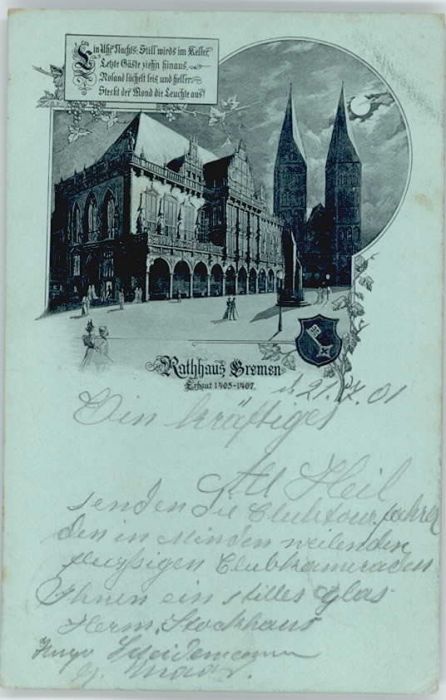 Ein Uhr Nachts. Still wirds im Keller,
Letzte Gäste ziehn hinaus,
Roland lächelt leis und heller
Steckt der Mond die Leuchte aus!
Rathhaus Bremen
Erbaut 1405-1407.
d. 21. 01
Ein kräftiges
All Heil
senden die Clubtourfahrer
den in Minden weilenden
Clubkameraden
Ihnen ein stilles Glas
Herm. Stockhaus
Hugo